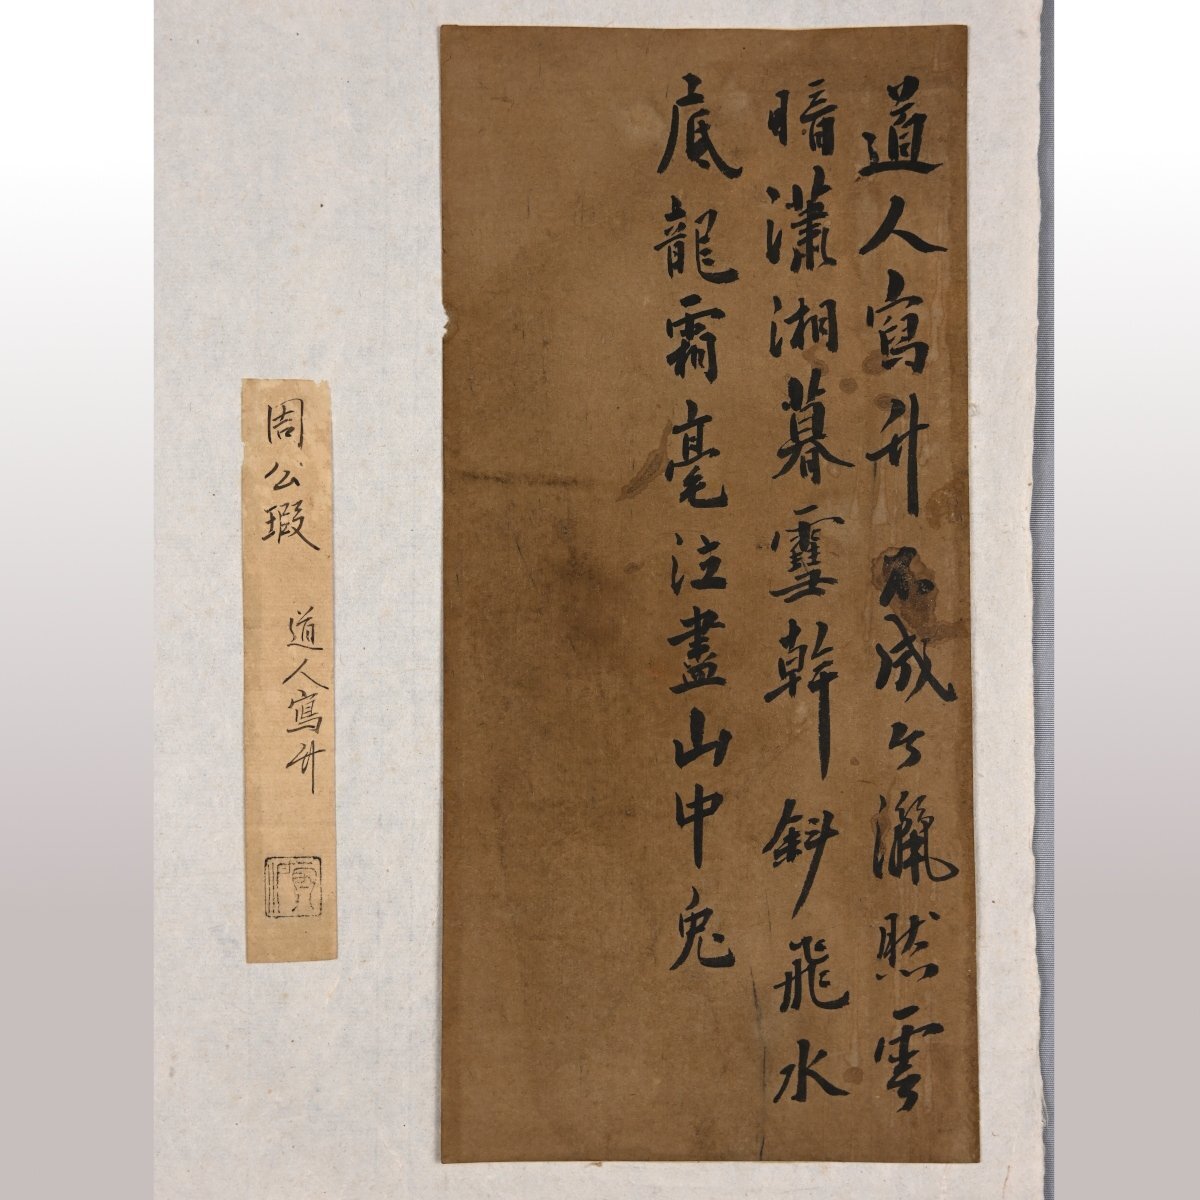 道人寫竹不成个灑然雲
暗瀟湘暮雪幹斜飛水
底龍霜毫泣盡山中兔
周公瑕
道人寫竹